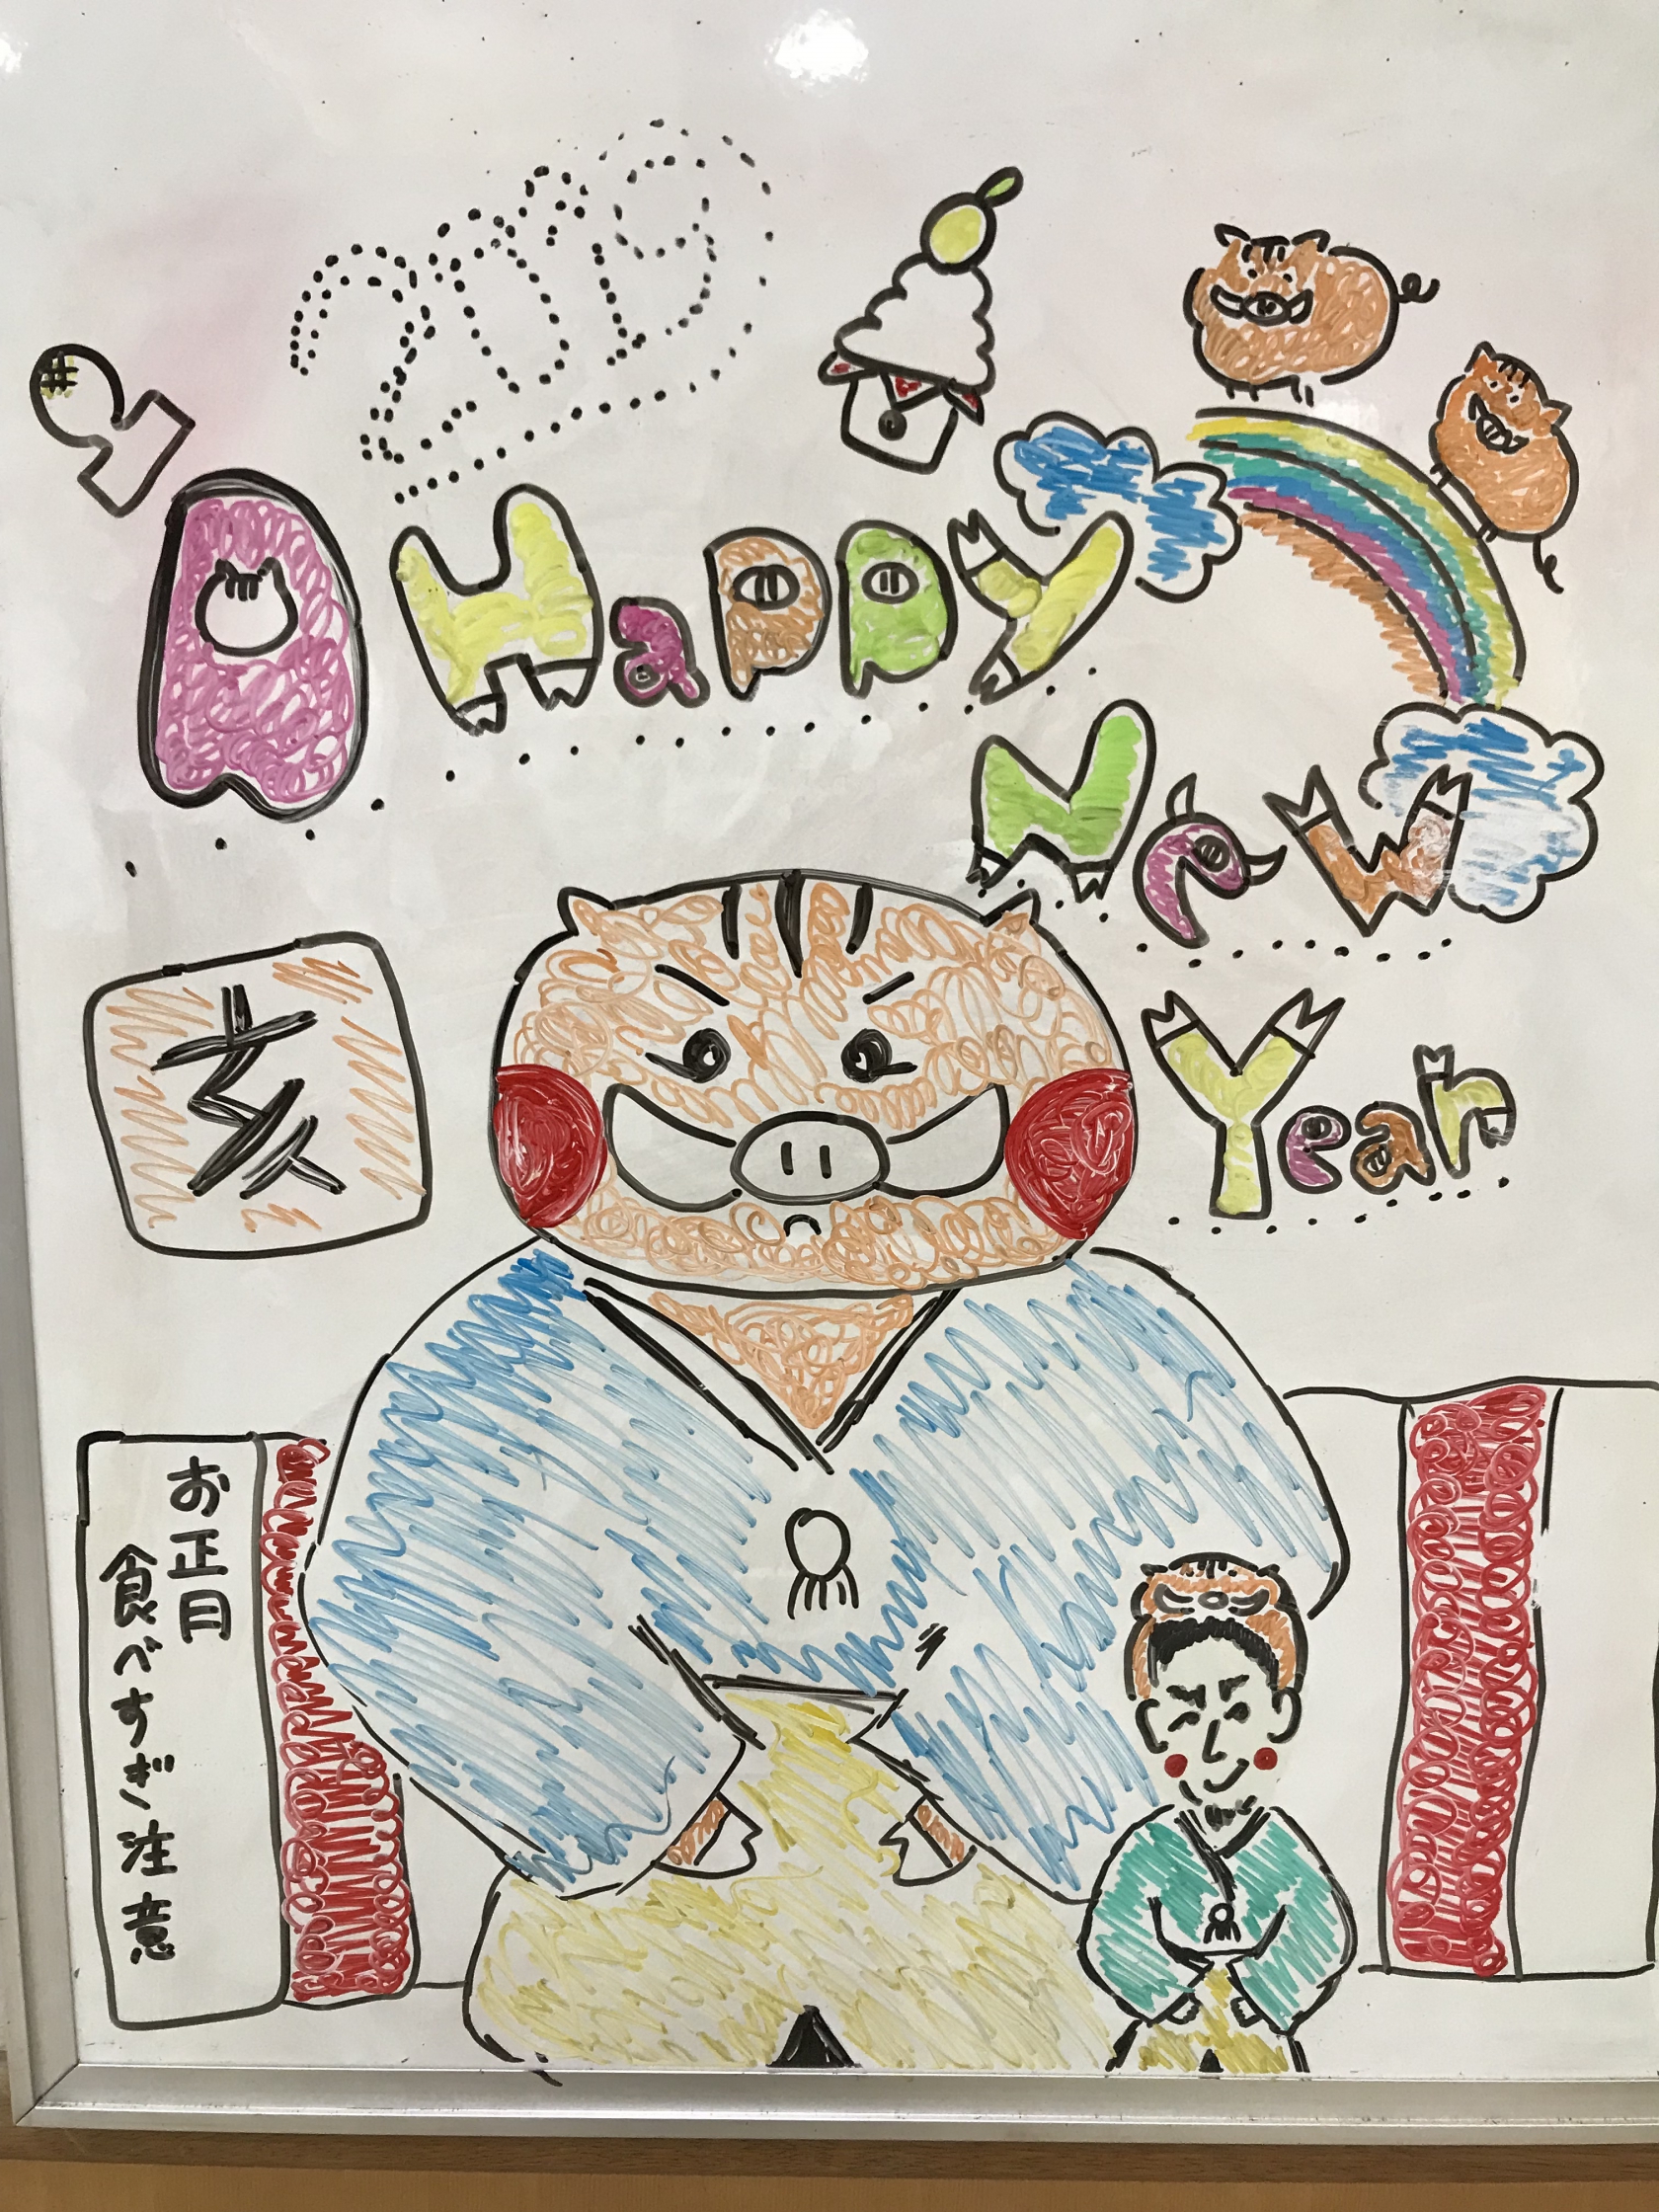 2019
A Happy
New
Year
亥
お正月
食べすぎ注意